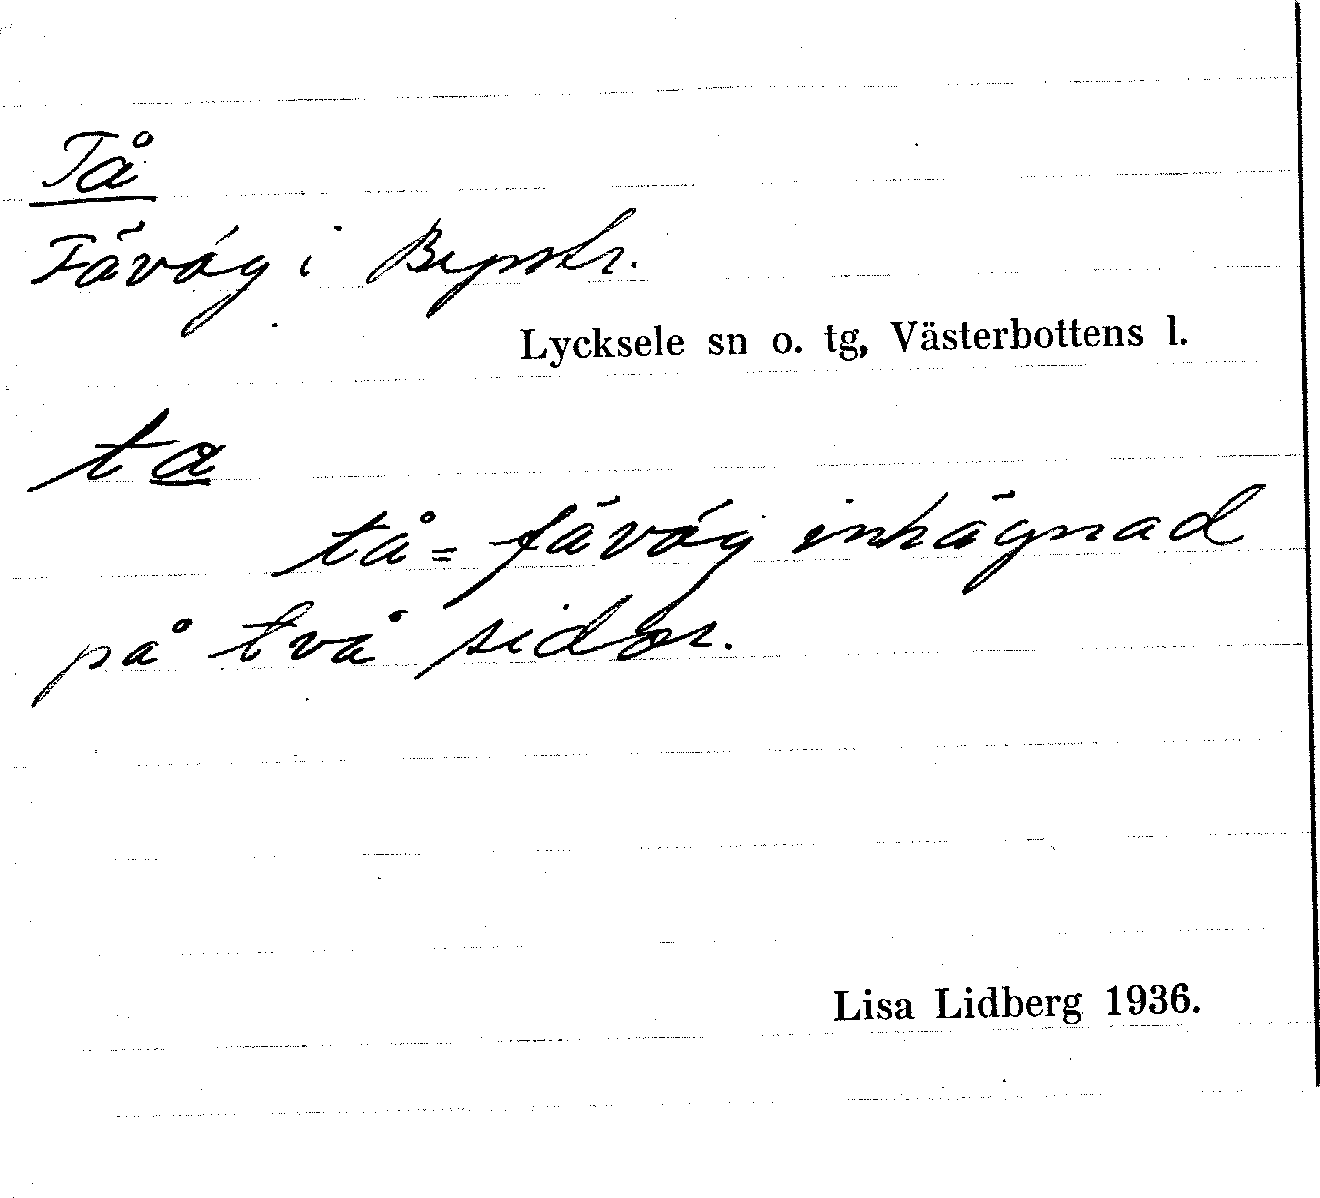 Tå
Fäväg i
Lycksele sn o. tg, Västerbottens l.
ta
tå = fäväg inhägnad
på två sidor.
Lisa Lidberg 1936.